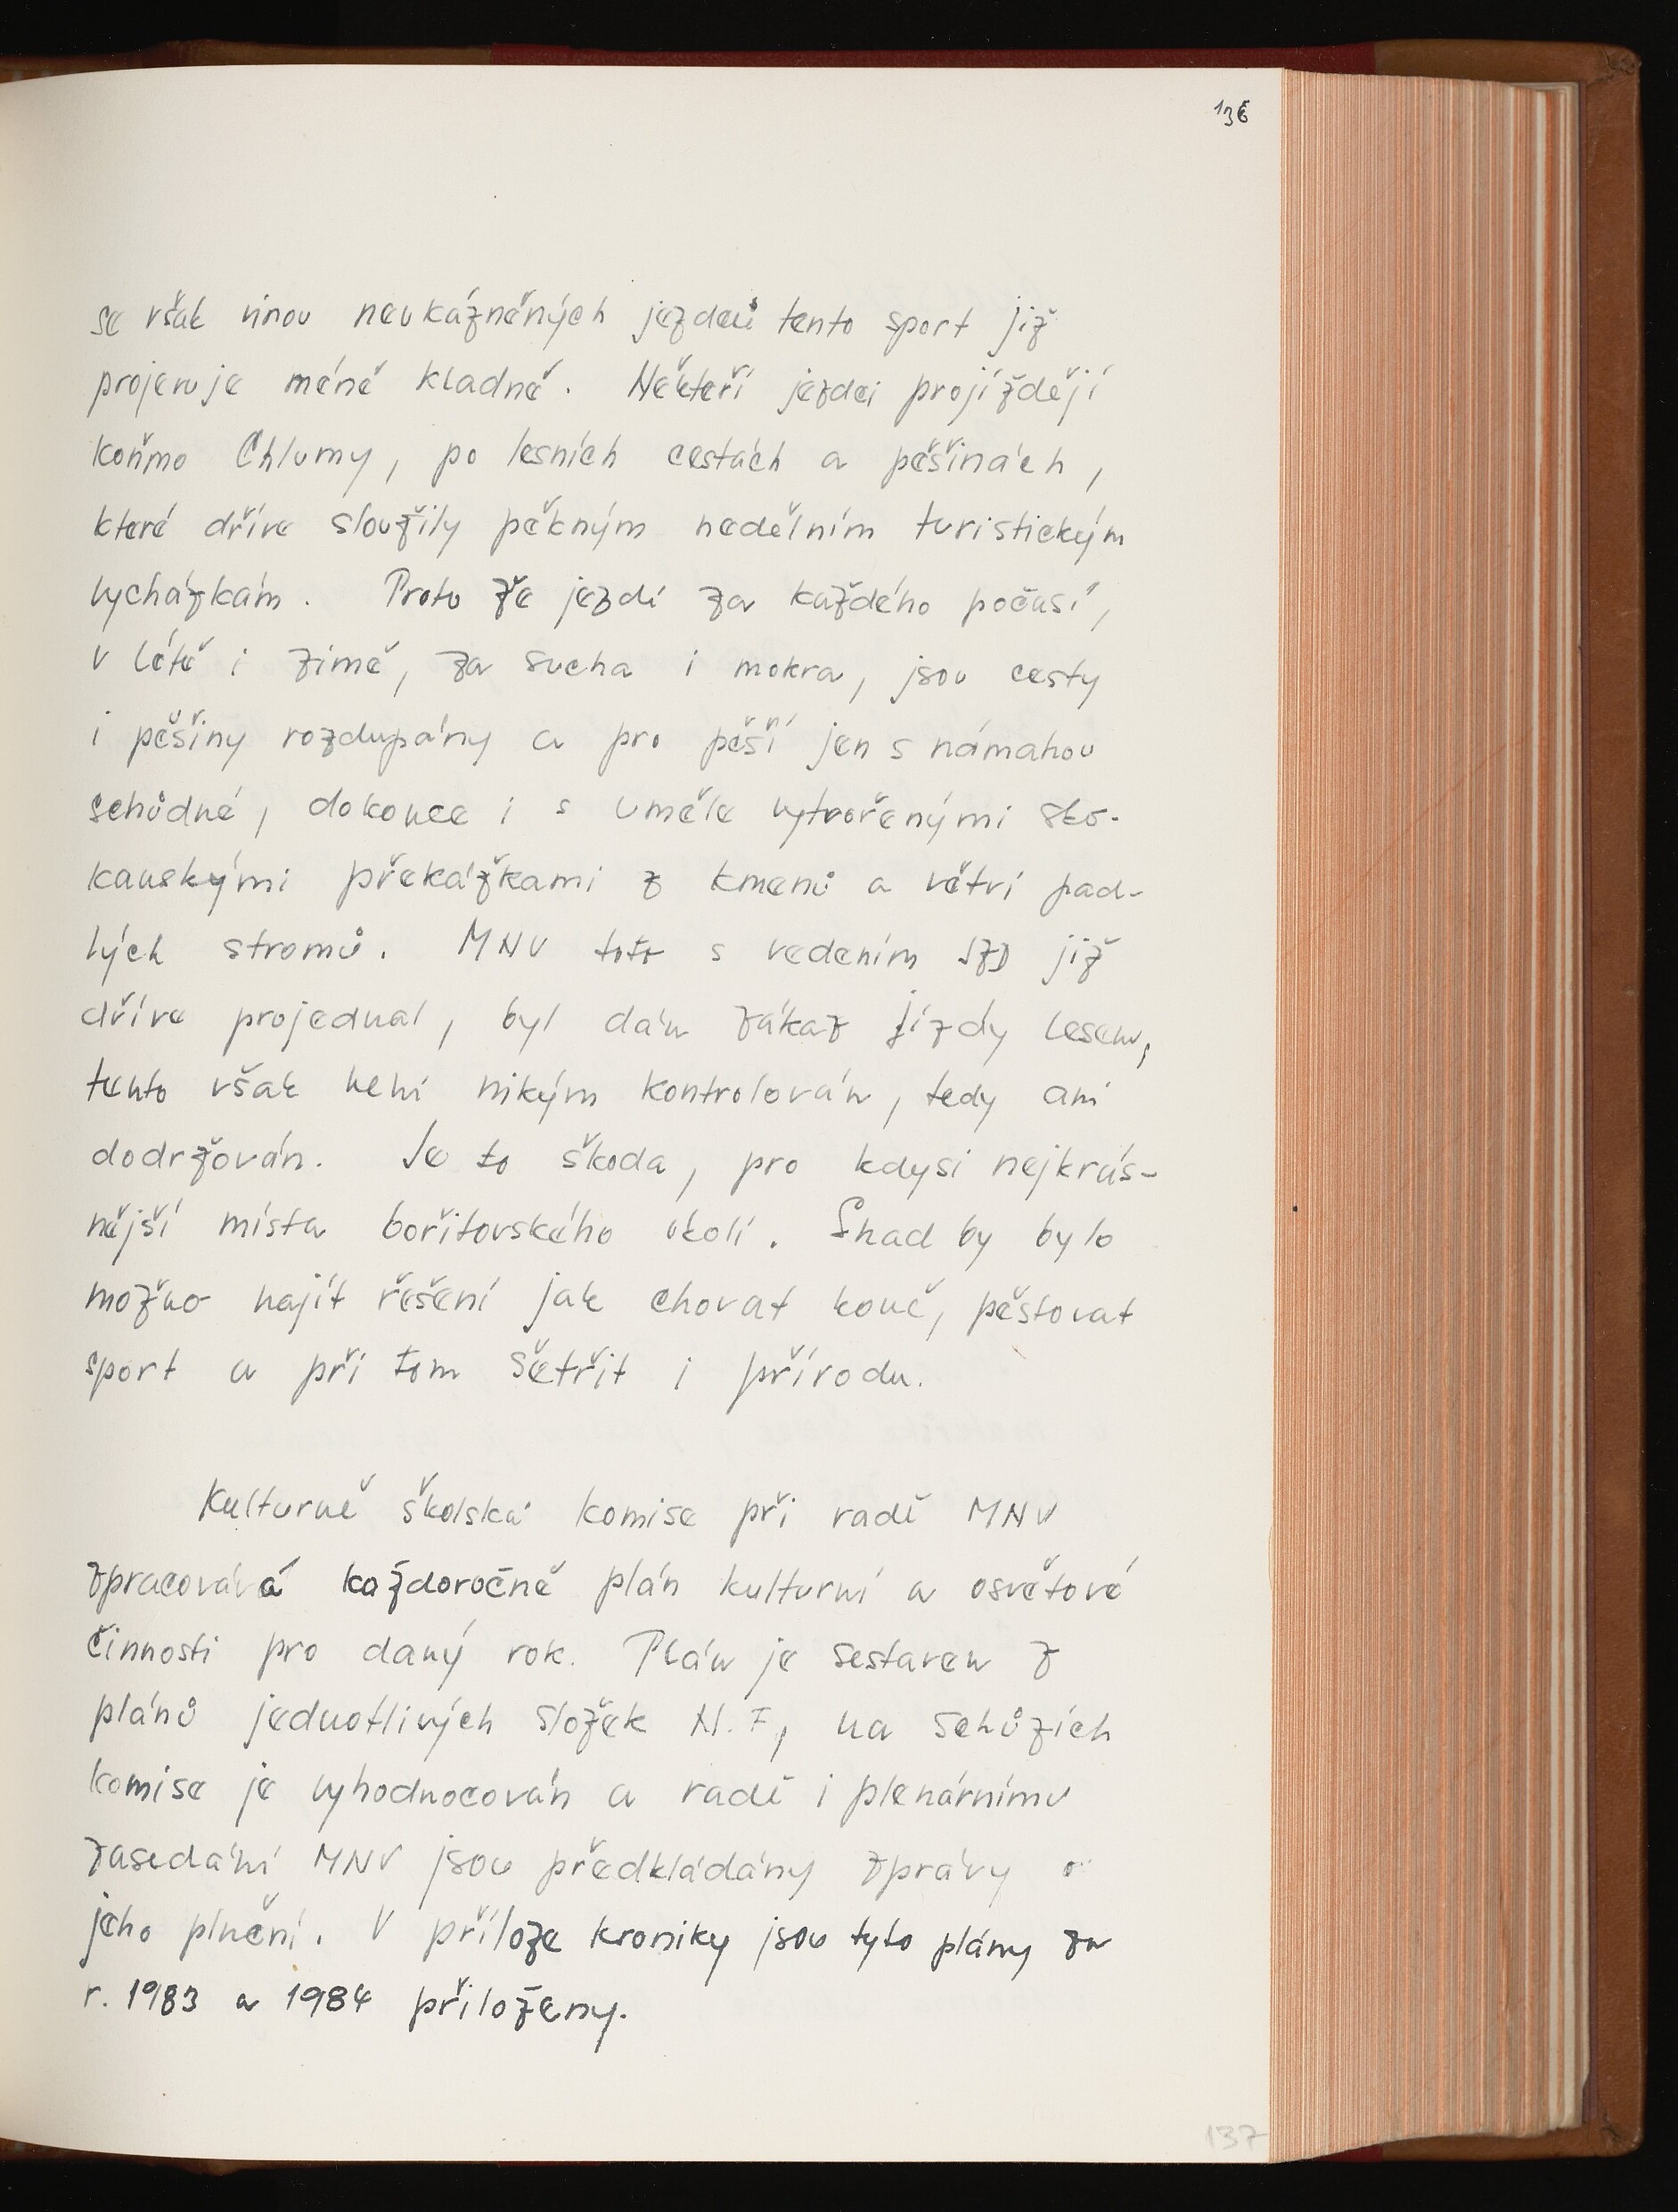 136
se však vinou neukázněných jezdců tento sport již
projevuje méně kladně. Někteří jezdci projíždějí
koňmo Chlumy, po lesních cestách a pěšinách,
které dříve sloužily pěkným nedělním turistickým
vycházkám. Proto že jezdí za každého počasí,
v létě i zimě, za sucha i mokra, jsou cesty
i pěšiny rozdupány a pro pěší jen s námahou
schůdné, dokonce i s uměle vytvořenými sko-
kanskými překážkami z kmenů a větví pad-
lých stromů. MNV toto s vedením JZD již
dříve projednal, byl dán zákaz jízdy lesem,
tento však není nikým kontrolován, tedy ani
dodržován. Je to škoda, pro kdysi nejkrás-
nější místa bořitovského okolí. Snad by bylo
možno najít řešení jak chovat koně, pěstovat
sport a při tom šetřit i přírodu.
Kulturně školská komise při radě MNV
zpracovává každoročně plán kulturní a osvětové
činnosti pro daný rok. Plán je sestaven z
plánů jednotlivých složek N.F, na schůzích
komise je vyhodnocován a radě i plenárnímu
zasedání MNV jsou předkládány zprávy o
jeho plnění. V příloze kroniky jsou tyto plány za
r. 1983 a 1984 přiloženy.
137